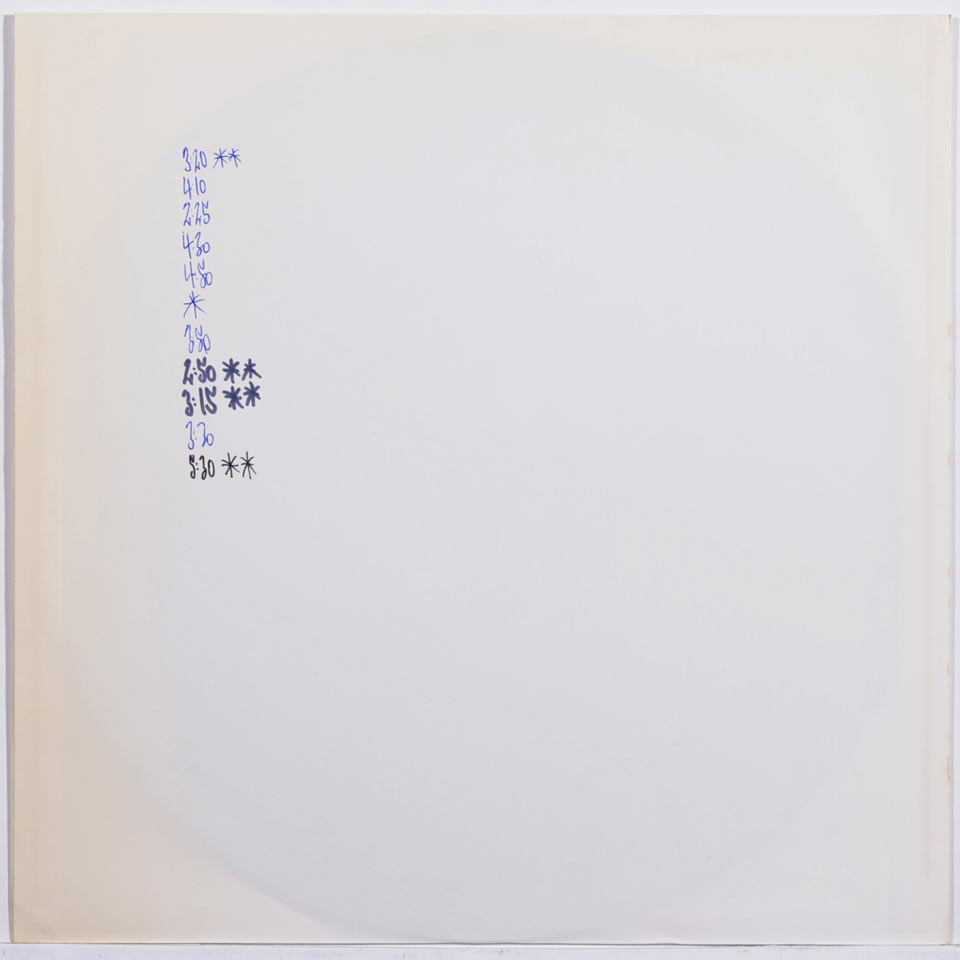 3:20 **
4:10
2:25
4:30
4:50
*
3:50
2:50 **
3:15 **
3:30
5:30 **